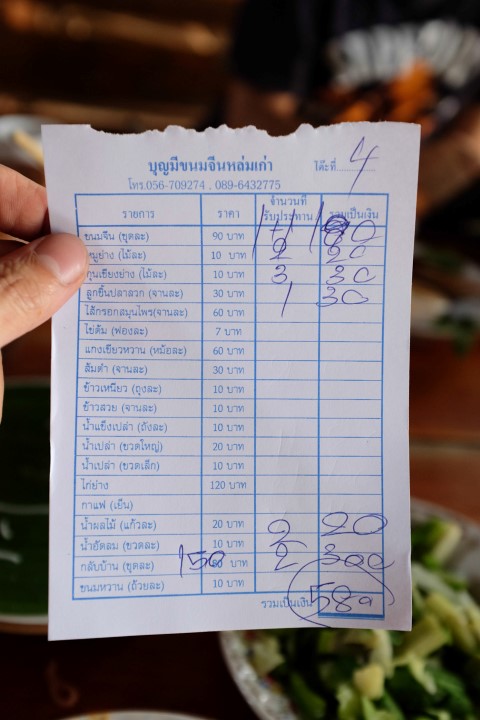 บุญมีขนมจีนหล่มเก่า โต๊ะที่ 4
โทร.056-709274 , 089-6432775
รายการ ราคา จำนวนที่รับประทาน รวมเป็นเงิน
ขนมจีน (ชุดละ) 90 บาท
หมูย่าง (ไม้ละ) 10 บาท 2 20
กุนเชียงย่าง (ไม้ละ) 10 บาท 3 30
ลูกชิ้นปลาลวก (จานละ) 30 บาท 1 30
ไส้กรอกสมุนไพร(จานละ) 60 บาท
ไข่ต้ม (ฟองละ) 7 บาท
แกงเขียวหวาน (หม้อละ) 60 บาท
ส้มตำ (จานละ) 30 บาท
ข้าวเหนียว (ถุงละ) 10 บาท
ข้าวสวย (จานละ) 10 บาท
น้ำแข็งเปล่า (ถังละ) 10 บาท
น้ำเปล่า (ขวดใหญ่) 20 บาท
น้ำเปล่า (ขวดเล็ก) 10 บาท
ไก่ย่าง 120 บาท
กาแฟ (เย็น)
น้ำผลไม้ (แก้วละ) 20 บาท
น้ำอัดลม (ขวดละ) 10 บาท 2 20
กลับบ้าน (ชุดละ) 150 บาท 2 300
ขนมหวาน (ถ้วยละ) 10 บาท
รวมเป็นเงิน 580